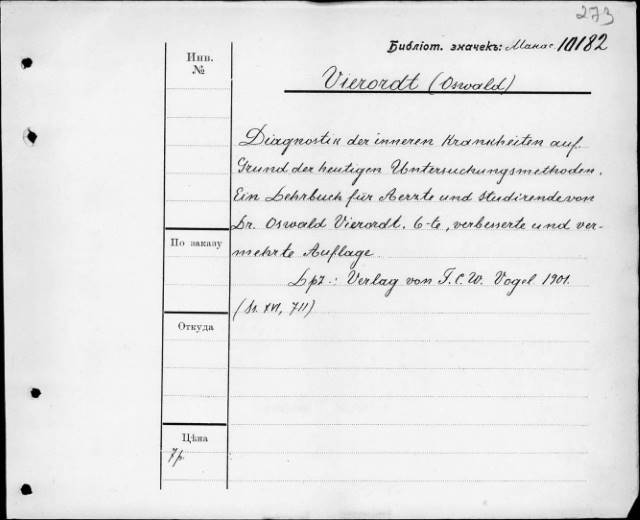 273
Библіот. значекъ: Манас. 10182
Инв.
№
Vierordt (Oswald)
Diagnostik der inneren Krankheiten auf
Grund der heutigen Untersuchungsmethoden.
Ein Lehrbuch für Aerzte und Studirende von
Dr. Oswald Vierordt. 6-te, verbesserte und ver-
mehrte Auflage
По заказу
Lpz.: Verlag von F.C.W. Vogel 1901.
XVI, 711)
Откуда
Цѣна
7р.